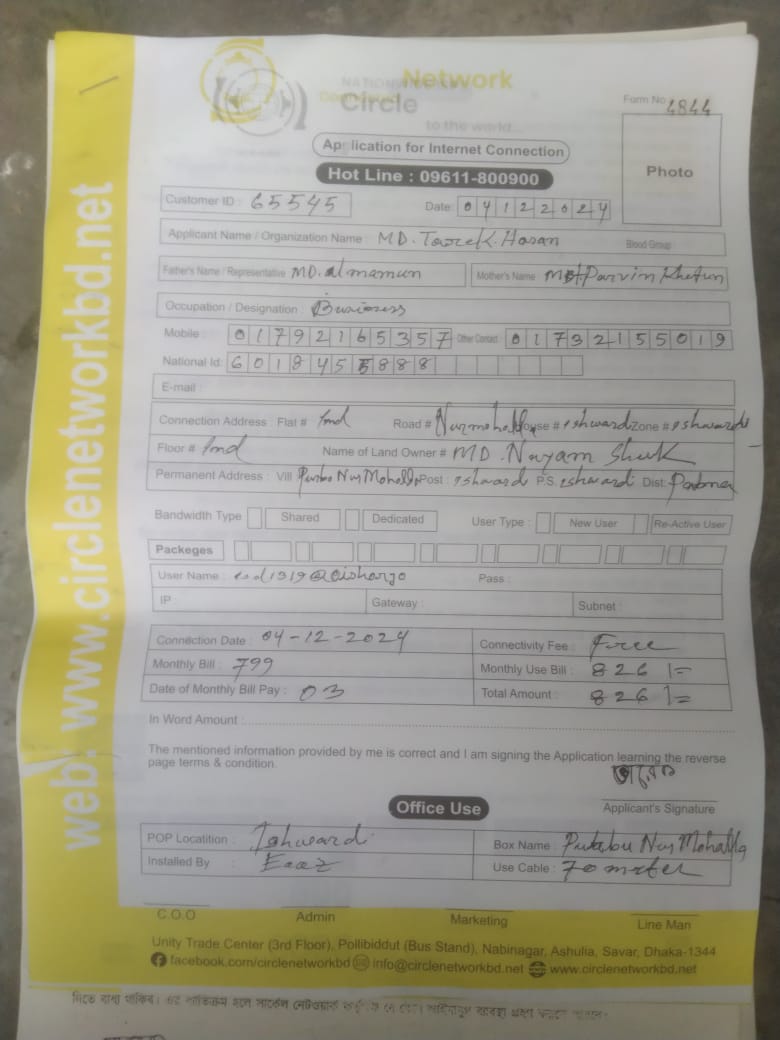 Network
Circle
to the world...
Form No 4844
Application for Internet Connection
Photo
Hot Line : 09611-800900
Customer ID : 65545 Date: 04122024
Applicant Name / Organization Name : MD. Tarek. Hasan Blood Group
Father's Name / Representative MD. al mamun Mother's Name Parvin Khatun
Occupation / Designation : Business
Mobile : 01792165357 Other Contact : 01732155019
National Id: 6018455888
E-mail :
Connection Address : Flat # Road # House # ishwardi Zone # ishwardi
Floor # Name of Land Owner # MD. Nayam Shek
Permanent Address : Vill Purbo Nur Mohalla Post : ishwardi P.S. ishwardi Dist: Pabna
Bandwidth Type Shared Dedicated User Type : New User Re-Active User
Packeges
User Name : Pass :
IP : Gateway : Subnet :
Connection Date : 04-12-2024 Connectivity Fee : Free
Monthly Bill : 799 Monthly Use Bill : 826/=
Date of Monthly Bill Pay : 03 Total Amount : 826/=
In Word Amount :
The mentioned information provided by me is correct and I am signing the Application learning the reverse
page terms & condition.
Applicant's Signature
Office Use
POP Locatition : Ishwardi Box Name : Nur Mohalla
Installed By : Use Cable : 70 meter
C.O.O Admin Marketing Line Man
Unity Trade Center (3rd Floor), Pollibiddut (Bus Stand), Nabinagar, Ashulia, Savar, Dhaka-1344
facebook.com/circlenetworkbd info@circlenetworkbd.net www.circlenetworkbd.net
web: www.circlenetworkbd.net
দিতে বাধ্য থাকিব। এর ব্যতিক্রম হলে সার্কেল নেটওয়ার্ক